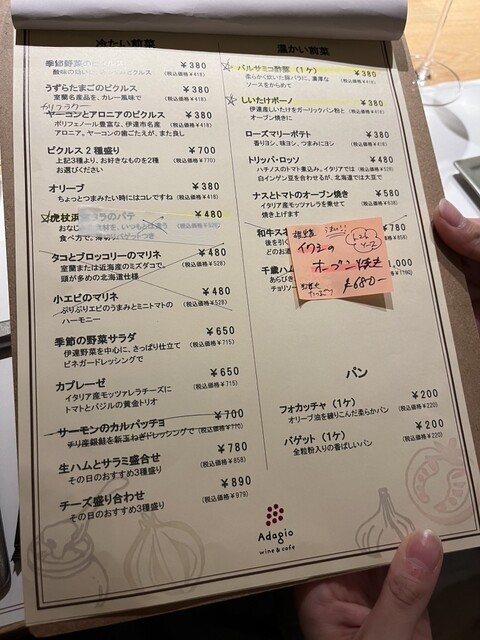 冷たい前菜
季節野菜のピクルス ¥380
(税込価格¥418)
うずらたまごのピクルス ¥380
室蘭名産品を、カレー風味で (税込価格¥418)
カリフラワー
ヤーコンとアロニアのピクルス ¥380
ポリフェノール豊富な、伊達市名産 (税込価格¥418)
アロニア。ヤーコンの歯ごたえが、また良し
ピクルス2種盛り ¥700
上記3種より、お好きなものを2種 (税込価格¥770)
お選びください
オリーブ ¥380
ちょっとつまみたい時にはコレですね (税込価格¥418)
虎杖浜 たらのパテ ¥480
食べ方で。薄切りバゲットつき
タコとブロッコリーのマリネ ¥480
室蘭または近海産のミズダコで。 (税込価格¥528)
頭が多めの北海道仕様
小エビのマリネ ¥480
ぷりぷりエビのうまみとミニトマトの (税込価格¥528)
ハーモニー
季節の野菜サラダ ¥650
伊達野菜を中心に、さっぱり仕立て (税込価格¥715)
ビネガードレッシングで
カプレーゼ ¥650
イタリア産モッツァレラチーズに (税込価格¥715)
トマトとバジルの黄金トリオ
サーモンのカルパッチョ ¥700
チリ産銀鮭を新玉ねぎドレッシングで (税込価格¥770)
生ハムとサラミ盛合せ ¥780
その日のおすすめ3種盛り (税込価格¥858)
チーズ盛り合わせ ¥890
その日のおすすめ3種盛り (税込価格¥979)
温かい前菜
バルサミコ酢豚(1ケ) ¥380
柔らかく炊いた豚バラに、濃厚な (税込価格¥418)
ソースをからめて
しいたけボーノ ¥380
伊達産しいたけをガーリックパン粉と (税込価格¥418)
オーブン焼きに
ローズマリーポテト ¥380
香りヨシ、味ヨシ、つまみにヨシ (税込価格¥418)
トリッパ・ロッソ ¥480
ハチノスのトマト煮込み。イタリアでは (税込価格¥528)
白インゲン豆を合わせるが、北海道では大豆で
ナスとトマトのオーブン焼き ¥580
イタリア産モッツァレラを乗せて (税込価格¥638)
焼き上げます
和牛ス 780
後を引く
どのお酒
千歳ハム 1,000
あらびき
チョリソー
イワシの
オーブン焼き
トマトソース
¥680-
パン
フォカッチャ(1ケ) ¥200
オリーブ油を練りこんだ柔らかパン (税込価格¥220)
バゲット(1ケ) ¥200
全粒粉入りの香ばしいパン (税込価格¥220)
Adagio
wine & cafe